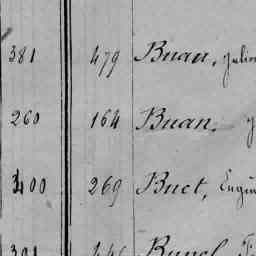 381 479 Buan, Julien
260 164 Buan,
400 269 Buet, Eugè
391 Bunel